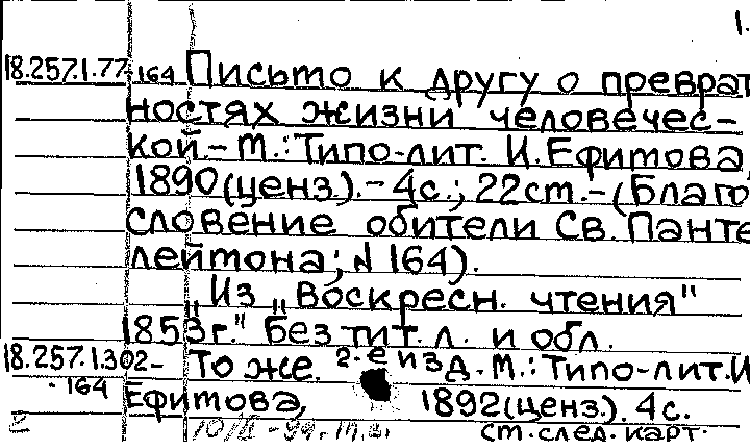 1.
18.257.1.77 164 Письмо к другу о преврат
ностях жизни человечес-
кой. - М.: Типо-лит. И. Ефимова,
1890 (ценз.). - 4с.; 22см. - (Благо
словение обители Св. Панте
леймона; № 164).
"Из "Воскресн. чтения"
1853г." Без тит. л. и обл.
18.257.1.302- То же. 2-е изд. М.: Типо-лит. И
164 Ефимова, 1892 (ценз.). 4с.
см. след. карт.